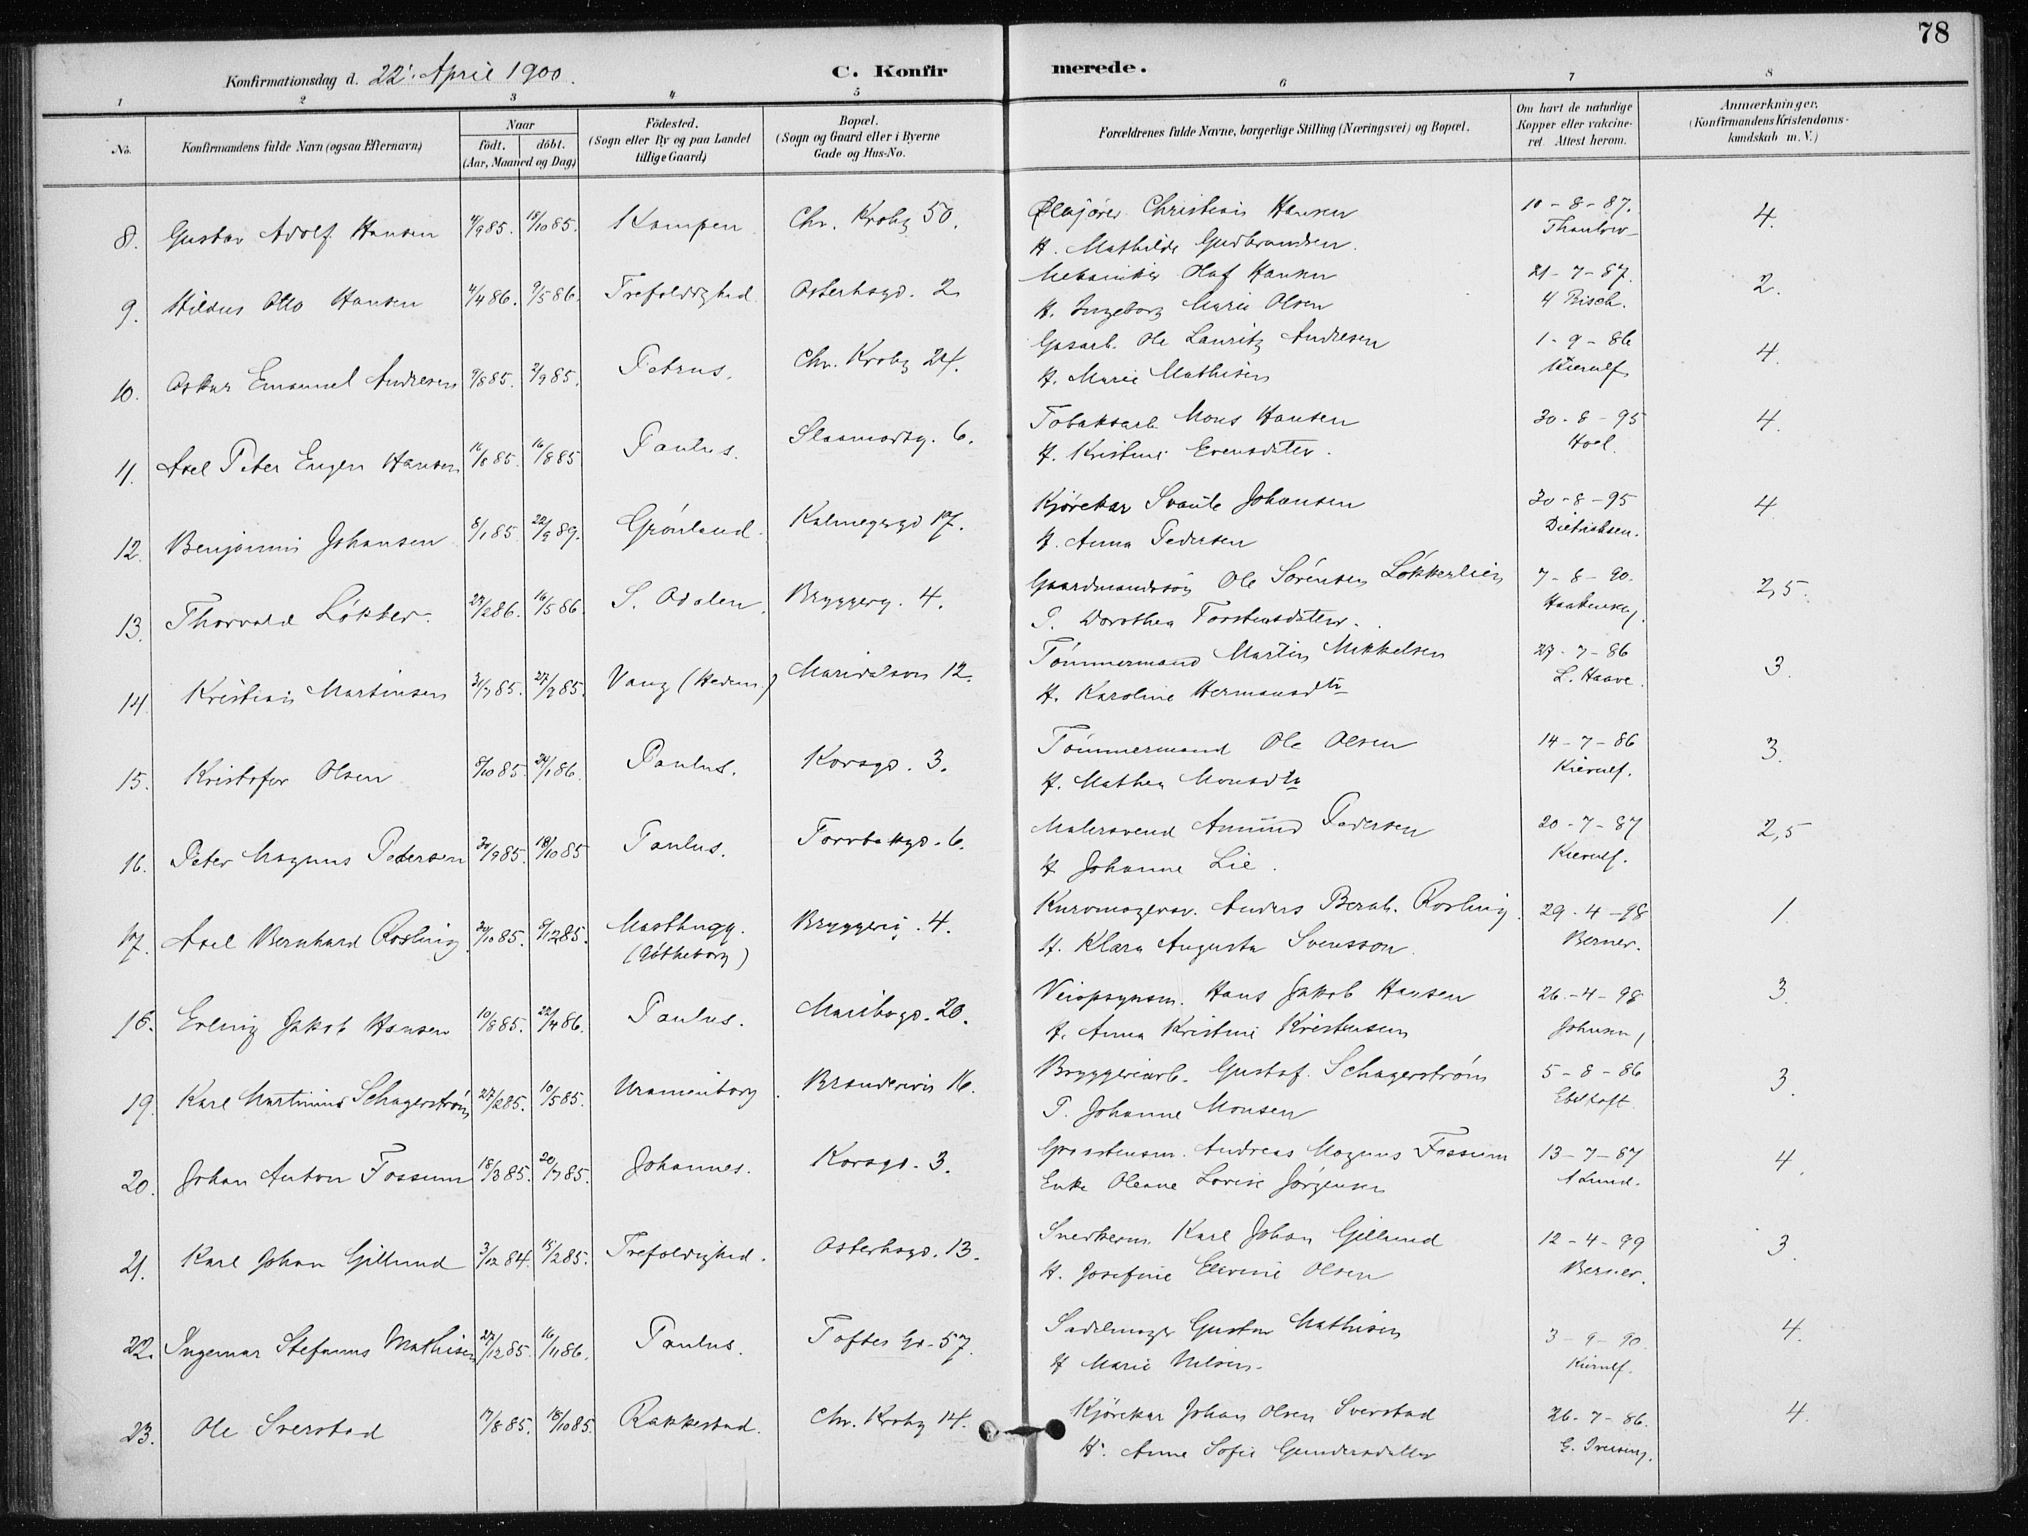 78
Konfirmationsdag d. 22' April 1900.
C. Konfir
merede.
1 2 3 4 5 6 7 8
No.
Konfirmandens fulde Navn (ogsaa Efternavn)
Naar
födt. döbt.
(Aar, Maaned og Dag)
Födested.
(Sogn eller By og paa Landet
tillige Gaard)
Bopæl.
(Sogn og Gaard eller i Byerne
Gade og Hus-No.
Forældrenes fulde Navne, borgerlige Stilling (Næringsvei) og Bopæl.
Om havt de naturlige
Kopper eller vakcine-
ret. Attest herom.
Anmærkninger.
(Konfirmandens Kristendoms-
kundskab m. V.)
8. Gustav Adolf Hansen 4/9 85. 18/10 85. Kampen Chr. Krohg 50. Christian Hansen 10-8-87. 4.
H. Mathilde Gudbrandsen. Thaulow
9. Hildus Otto Hansen 4/4 86. 9/5 86. Trefoldighed. Osterhsgd. 2 Mekaniker Olaf Hansen 21-7-87. 2.
H. Ingeborg Marie Olsen
10. Oskar Emanuel Andresen 9/8 85. 2/9 85. Petrus. Chr. Krohg 24. Gasarb. Ole Lauritz Andresen 1-9-86 4.
H. Marie Mathisen Kierulf
11. Axel Peter Eugen Hansen 16/8 85. 16/8 85 Paulus. 6. Tobaksarb. Mons Hansen 30-8-95 4.
H. Kristine Evensdatter. Hoel.
12. Benjamin Johansen 8/1 85. 22/9 89. Grönland. Kalmeyergd 17. Kjörekar Johansen 30-8-95 4
H. Anna Pedersen Dietrichsen.
13. Thorvald Lökker. 27/2 86. 16/5 86. S. Odalen. Bryggerg. 4. Gaardmandssön Ole Sörensen Lökkerlien 7-8-90. 2,5.
P. Dorothea Torstensdatter.
14. Kristian Martinsen 31/7 85. 27/9 85. Vang (Hedem) Maridalsvn 12. Tömmermand Martin Mikkelsen 27-7-86 3.
H. Karoline Hermansdtr L. Haave.
15. Kristofer Olsen 8/10 85. 24/1 86. Paulus. Korsgd. 3. Tömmermand Ole Olsen 14-7-86 3.
H. Mathea Monsdtr Kierulf.
16. Peter Magnus Pedersen 30/9 85. 18/10 85 Paulus. Torvbakgd. 6. Malersvend Amund Pedersen 20-7-87 2,5
H Johanne Lie. Kierulf.
17. Axel Bernhard Rosling 30/10 85. 6/12 85. Masthugg. Bryggerig. 4. Kurvmagersv. Anders Bernh. Rosling. 29-4-98 1.
(Götheborg) H. Klara Augusta Svensson. Berner.
18. Erling Jakob Hansen 10/9 85. 22/4 86. Paulus. Maribogd. 20. Veiopsynsm. Hans Jakob Hansen 26-4-98 3.
H. Anna Kristine Kristensen Johnsen
19. Karl Martinius Schagerström 27/2 85. 10/5 85. Uranienborg. 16. Bryggeriarb. Gustaf Schagerström 5-8-86 3.
P. Johanne Monsen Ebeltoft.
20. Johan Anton Fossum 18/3 85. 20/7 85. Johannes. Korsgd. 3. Andreas Magnus Fossum 13-7-87 4.
Enke Oleane Lovise Jörgensen Lund.
21. Karl Johan Gillund 3/12 84. 15/2 85. Trefoldighed. Osterhsgd. 13. Snedkerm. Karl Johan Gillund 12-4-99 3.
H. Josefine Elevine Olsen Berner.
22. Ingemar Stefanus Mathisen 27/12 85. 16/11 86. Paulus. Toftes Gd. 57. Sadelmager Gustav Mathisen 3-9-90. 4.
H Marie Nilsen. Kierulf.
23. Ole Sverstad 17/8 85. 18/10 85. Rakkestad. Chr. Krohg 14. Kjörekar Johan Olsen Sverstad 26-7-86. 4.
H. Anne Sofie Gundersdatter